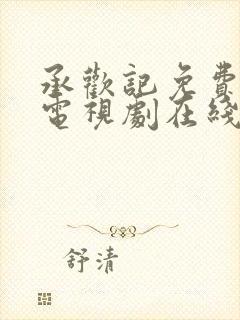 承歡記免費
電視劇在綫
舒清